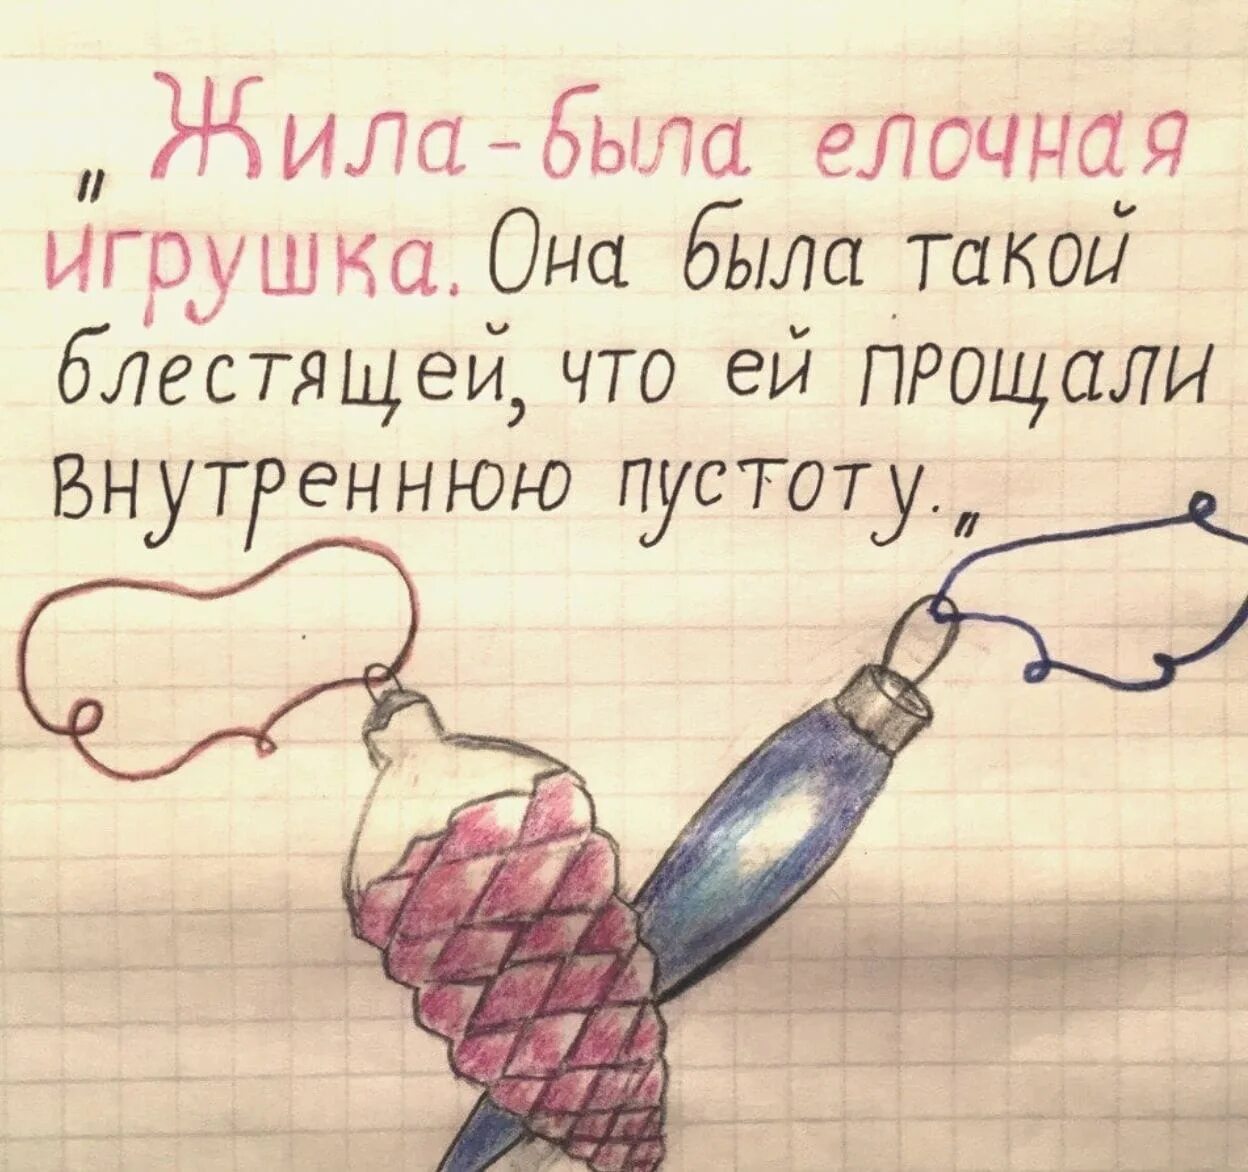 „Жила-была елочная
игрушка. Она была такой
блестящей, что ей прощали
внутреннюю пустоту.„